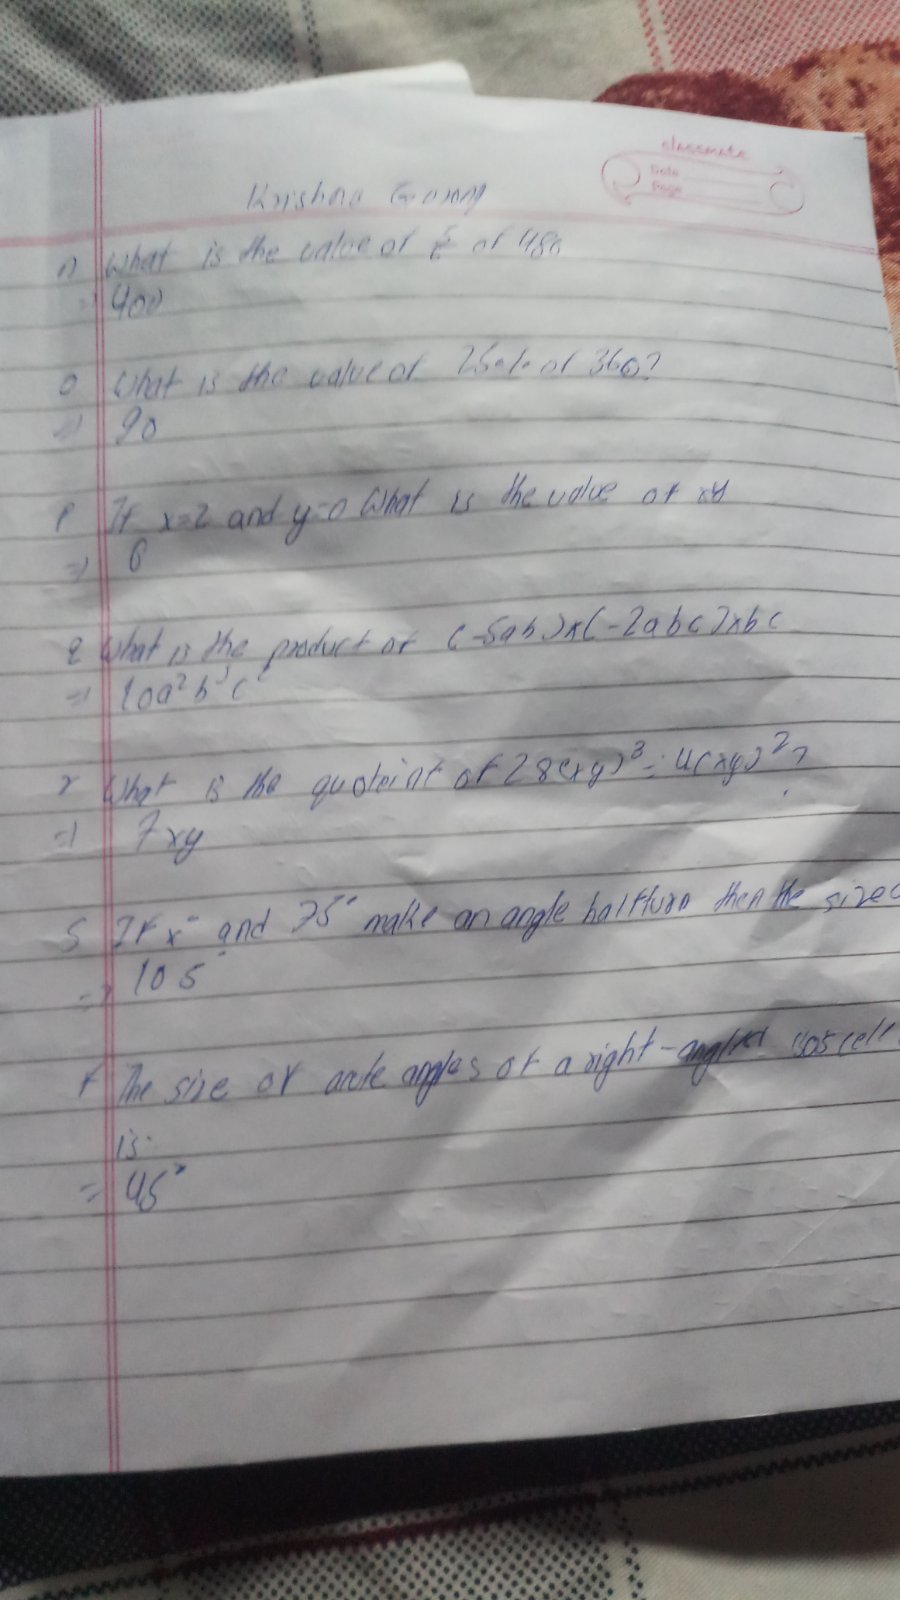 classmate
Date
Page
Krishna
n) What is the value of 5/6 of 480
=> 400
o What is the value of 25% of 360?
=> 90
p If x=2 and y=0 What is the value of xy
=> 6
q What is the product of (-5ab)x(-2abc)xbc
=> 10a²b³c²
r What is the quoteint of 28(xy)³ ÷ 4(xy)²?
=> 7xy
S If x° and 75° make an angle halfturn then the size
=> 105°
t The size of acute angles of a right-angled
is.
= 45°